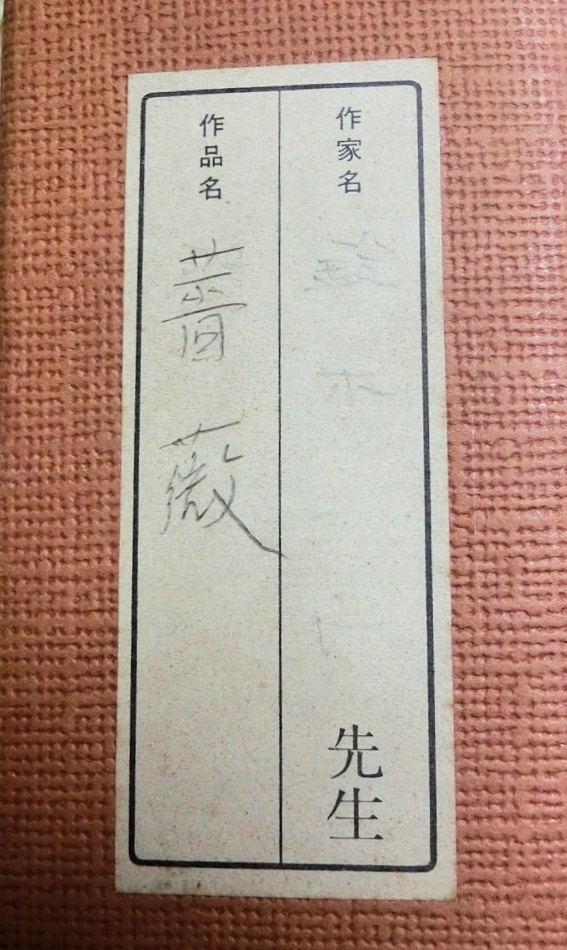 作家名
先生
作品名
薔薇